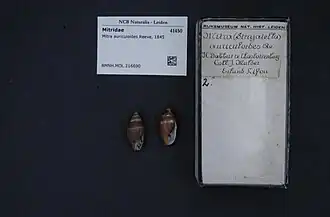 NCB Naturalis - Leiden
Mitridae 41650
Mitra auriculoides Reeve, 1845
RMNH.MOL.216690
RIJKSMUSEUM NAT. HIST. LEIDEN
Mitra (Strigatella)
auriculoides
Coll.
Eiland Lifou
2.